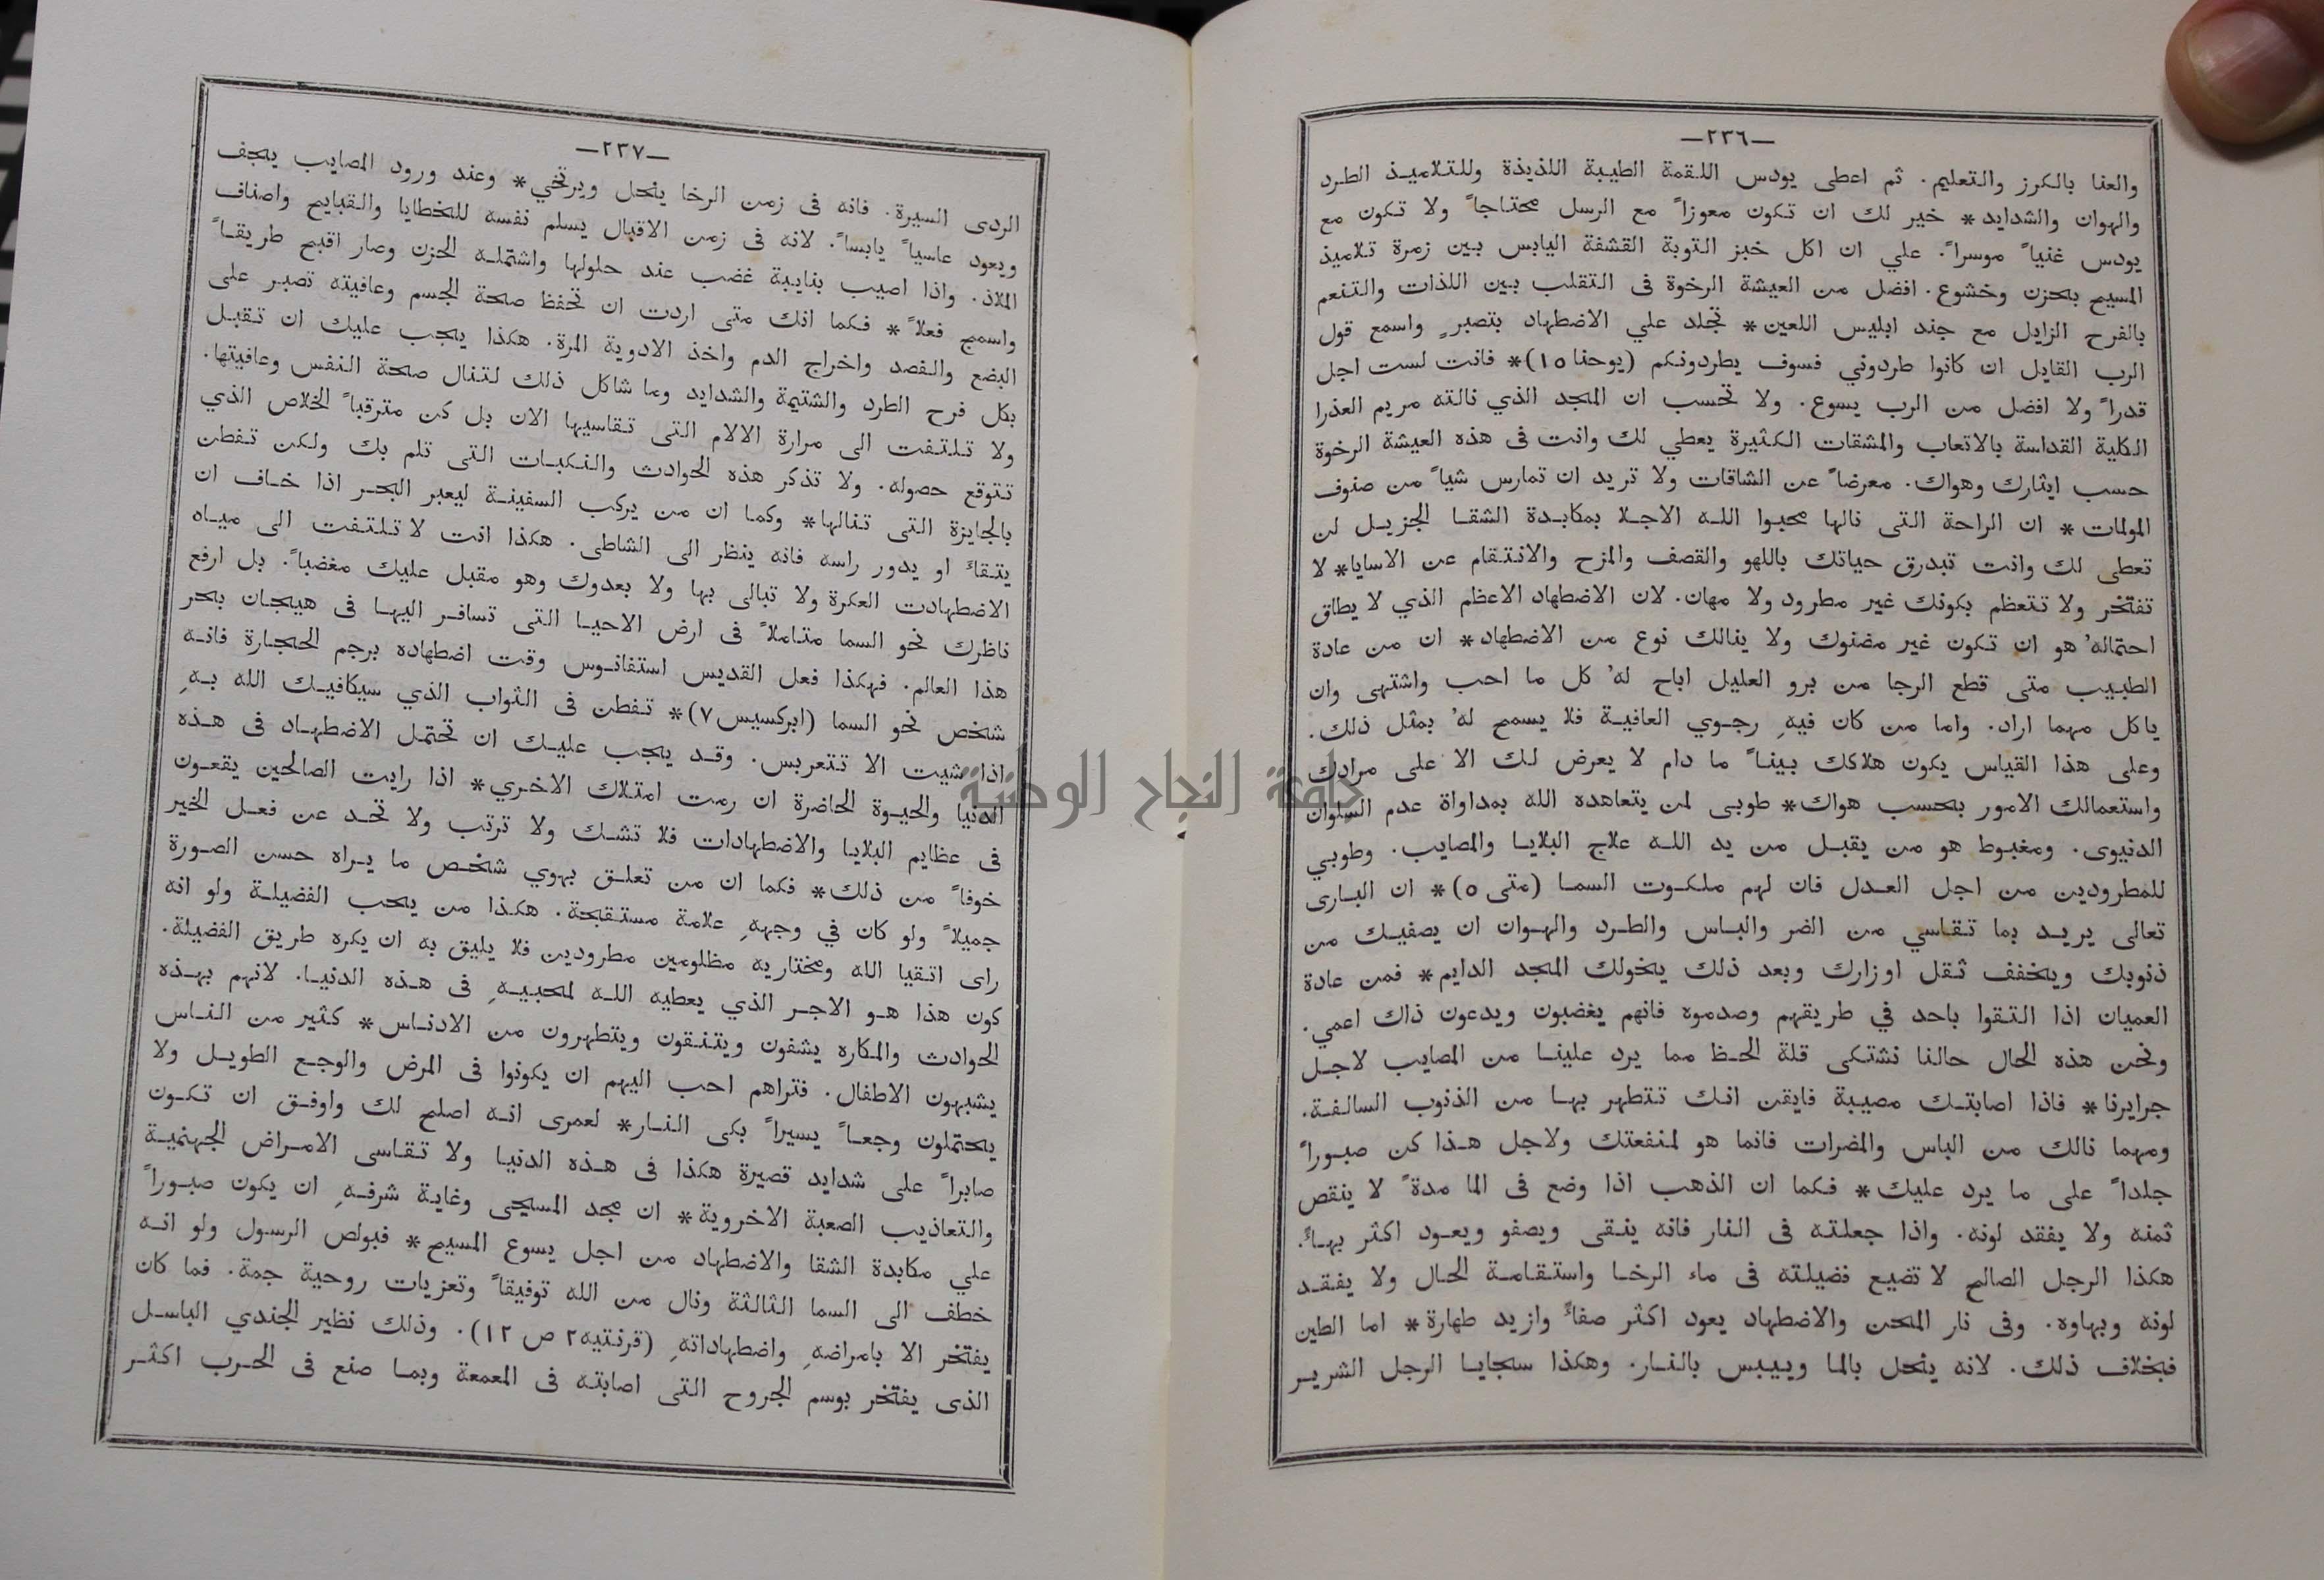 —٢٣٦—
والعنا بالكرز والتعليم. ثم اعطى يودس اللقمة الطيبة اللذيذة وللتلاميذ الطرد
والهوان والشدايد* خير لك ان تكون معوزاً مع الرسل محتاجاً ولا تكون مع
يودس غنياً موسراً. علي ان اكل خبز التوبة القشفة اليابس بين زمرة تلاميذ
المسيح بحزن وخشوع. افضل من العيشة الرخوة فى التقلب بين اللذات والتنعم
بالفرح الزايل مع جند ابليس اللعين* تجلد علي الاضطهاد بتصبرٍ واسمع قول
الرب القايل ان كانوا طردوني فسوف يطردونكم (يوحنا ١٥)* فانت لست اجل
قدراً ولا افضل من الرب يسوع. ولا تحسب ان المجد الذي نالته مريم العذرا
الكلية القداسة بالاتعاب والمشقات الكثيرة يعطي لك وانت فى هذه العيشة الرخوة
حسب ايثارك وهواك. معرضاً عن الشاقات ولا تريد ان تمارس شياً من صنوف
المولمات* ان الراحة التى نالها محبوا الله الاجلا بمكابدة الشقا الجزيل لن
تعطى لك وانت تبدرق حياتك باللهو والقصف والمزح والانتقام عن الاسايا* لا
تفتخر ولا تتعظم بكونك غير مطرود ولا مهان. لان الاضطهاد الاعظم الذي لا يطاق
احتماله' هو ان تكون غير مضنوك ولا ينالك نوع من الاضطهاد* ان من عادة
الطبيب متى قطع الرجا من برو العليل اباح له' كل ما احب واشتهى وان
ياكل مهما اراد. واما من كان فيهِ رجوي العافية فلا يسمح له' بمثل ذلك.
وعلى هذا القياس يكون هلاكك بيناً ما دام لا يعرض لك الا على مرادك
واستعمالك الامور بحسب هواك* طوبى لمن يتعاهده الله بمداواة عدم السلوان
الدنيوى. ومغبوط هو من يقبل من يد الله علاج البلايا والمصايب. وطوبي
للمطرودين من اجل العدل فان لهم ملكوت السما (متى ٥)* ان البارى
تعالى يريد بما تقاسي من الضر والباس والطرد والهوان ان يصفيك من
ذنوبك ويخفف ثقل اوزارك وبعد ذلك يخولك المجد الدايم* فمن عادة
العميان اذا التقوا باحد في طريقهم وصدموه فانهم يغضبون ويدعون ذاك اعمي.
ونحن هذه الحال حالنا نشتكى قلة الحظ مما يرد علينا من المصايب لاجل
جرايرنا* فاذا اصابتك مصيبة فايقن انك تتطهر بها من الذنوب السالفة.
ومهما نالك من الباس والمضرات فانما هو لمنفعتك ولاجل هذا كن صبوراً
جلداً على ما يرد عليك* فكما ان الذهب اذا وضع فى الما مدةً لا ينقص
ثمنه ولا يفقد لونه. واذا جعلته فى النار فانه ينقى ويصفو ويعود اكثر بهاً.
هكذا الرجل الصالح لا تضيع فضيلته فى ماء الرخا واستقامة الحال ولا يفقد
لونه وبهاوه. وفى نار المحن والاضطهاد يعود اكثر صفاً وازيد طهارة* اما الطين
فبخلاف ذلك. لانه ينحل بالما وييبس بالنار. وهكذا سجايا الرجل الشرير
—٢٣٧—
الردى السيرة. فانه فى زمن الرخا ينحل ويرتخي* وعند ورود المصايب يجف
ويعود عاسياً يابساً. لانه فى زمن الاقبال يسلم نفسه للخطايا والقبايح واصناف
الملاذ. واذا اصيب بنايبة غضب عند حلولها واشتمله الحزن وصار اقبح طريقاً
واسمج فعلاً* فكما انك متى اردت ان تحفظ صحة الجسم وعافيته تصبر على
البضع والفصد واخراج الدم واخذ الادوية المرة. هكذا يجب عليك ان تقبل
بكل فرح الطرد والشتيمة والشدايد وما شاكل ذلك لتنال صحة النفس وعافيتها.
ولا تلتفت الى مرارة الالام التى تقاسيها الان بل كن مترقباً الخلاص الذي
تتوقع حصوله. ولا تذكر هذه الحوادث والنكبات التى تلم بك ولكن تفطن
بالجايزة التى تنالها* وكما ان من يركب السفينة ليعبر البحر اذا خاف ان
يتقاء او يدور راسه فانه ينظر الى الشاطى. هكذا انت لا تلتفت الى مياه
الاضطهادت العكرة ولا تبالى بها ولا بعدوك وهو مقبل عليك مغضباً. بل ارفع
ناظرك نحو السما متاملاً فى ارض الاحيا التى تسافر اليها فى هيجان بحر
هذا العالم. فهكذا فعل القديس استفانوس وقت اضطهاده برجم الحجارة فانه
شخص نحو السما (ابركسيس ٧)* تفطن فى الثواب الذي سيكافيك الله بهِ
اذا شيت الا تتعربس. وقد يجب عليك ان تحتمل الاضطهاد فى هذه
الدنيا والحيوة الحاضرة ان رمت امتلاك الاخري* اذا رايت الصالحين يقعون
فى عظايم البلايا والاضطهادات فلا تشك ولا ترتب ولا تحد عن فعل الخير
خوفاً من ذلك* فكما ان من تعلق بهوي شخص ما يراه حسن الصورة
جميلاً ولو كان في وجههِ علامة مستقبحة. هكذا من يحب الفضيلة ولو انه
راى اتقيا الله ومختاريه مظلومين مطرودين فلا يليق به ان يكره طريق الفضيلة.
كون هذا هو الاجر الذي يعطيه الله لمحبيهِ فى هذه الدنيا. لانهم بهذه
الحوادث والمكاره يشفون ويتنقون ويتطهرون من الادناس* كثير من الناس
يشبهون الاطفال. فتراهم احب اليهم ان يكونوا فى المرض والوجع الطويل ولا
يحتملون وجعاً يسيراً بكى النار* لعمرى انه اصلح لك واوفق ان تكون
صابراً على شدايد قصيرة هكذا فى هذه الدنيا ولا تقاسى الامراض الجهنمية
والتعاذيب الصعبة الاخروية* ان مجد المسيحى وغاية شرفهِ ان يكون صبوراً
علي مكابدة الشقا والاضطهاد من اجل يسوع المسيح* فبولص الرسول ولو انه
خطف الى السما الثالثة ونال من الله توفيقاً وتعزيات روحية جمة. فما كان
يفتخر الا بامراضهِ واضطهاداتهِ (قرنتيه ٢ ص ١٢). وذلك نظير الجندي الباسل
الذى يفتخر بوسم الجروح التى اصابته فى المعمعة وبما صنع فى الحرب اكثر
جامعة النجاح الوطنية